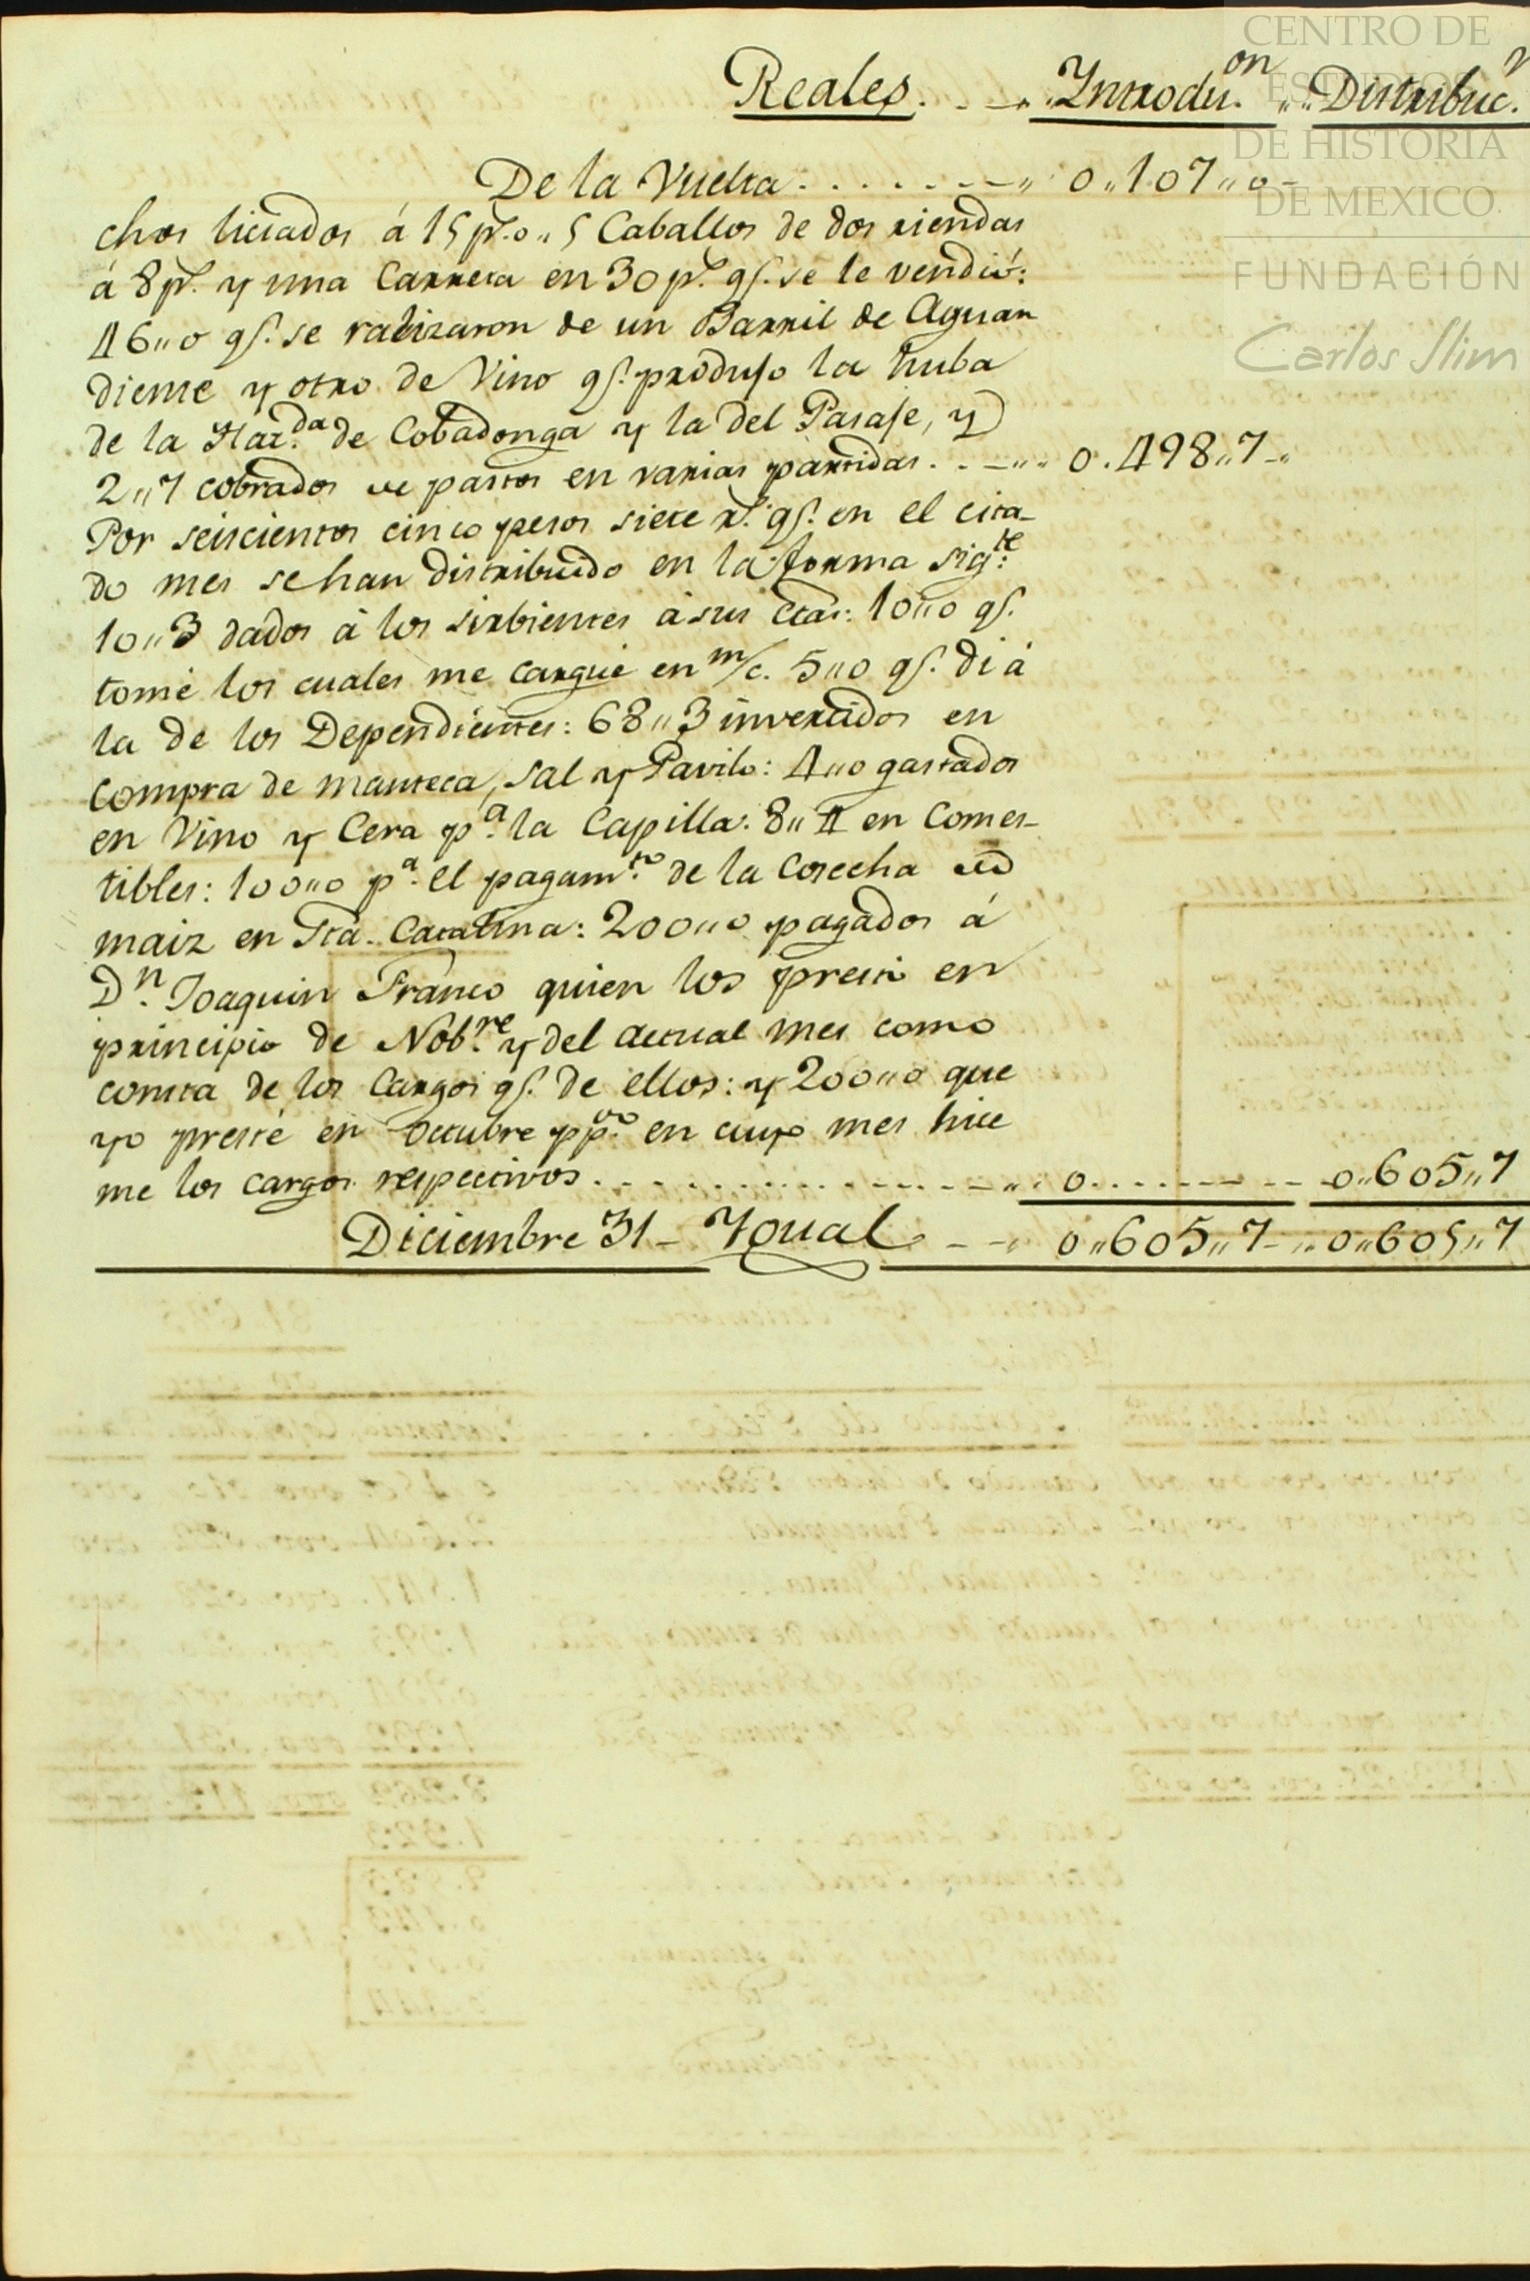 CENTRO DE
ESTUDIOS
DE HISTORIA
DE MEXICO.
FUNDACIÓN
Carlos Slim
Reales. . - „ Introdu.on „ „ Distribuc.n
De la Vuelta . . . . . . . - - „ 0„107„0-
chos liciados á 15 p.s 0„ 5 Caballos de dos riendas
á 8 p.s y una Carreta en 30 p.s q.e se le vendió:
46„0 q.e se ralizaron de un Barril de Aguar
diente y otro de Vino q.e produjo la huba
de la Haz.da de Cobadonga y la del Pasaje, y
2„7 cobrados de pastos en varias partidas. . - „ „ 0.498„7-„
Por seiscientos cinco pesos siete r.s q.e en el cita-
do mes se han distribuido en la forma sig.te
10„3 dados á los sirbientes á sus Ctas: 10„0 q.e
tomé los cuales me cargué en m/c. 5„0 q.e di á
la de los Dependientes: 68„3 invertidos en
compra de manteca, sal y Pavilo: 4„0 gastados
en Vino y Cera p.a la Capilla: 8„4 en Comes-
tibles: 100„0 p.a el pagam.to de la Cosecha de
maiz en Sta. Catalina: 200„0 pagados á
D.n Joaquin Franco quien los prestó en
principio de Nob.re y del actual mes como
consta de los Cargos q.e de ellos: y 200„0 que
yo presté en Octubre pp.do en cuyo mes hice
me los cargos respectivos. . . . . . . . . . . . „ 0. . . . . . - - - 0„605„7
Diciembre 31 - Igual - - „ 0„605„7 - „ 0„605„7